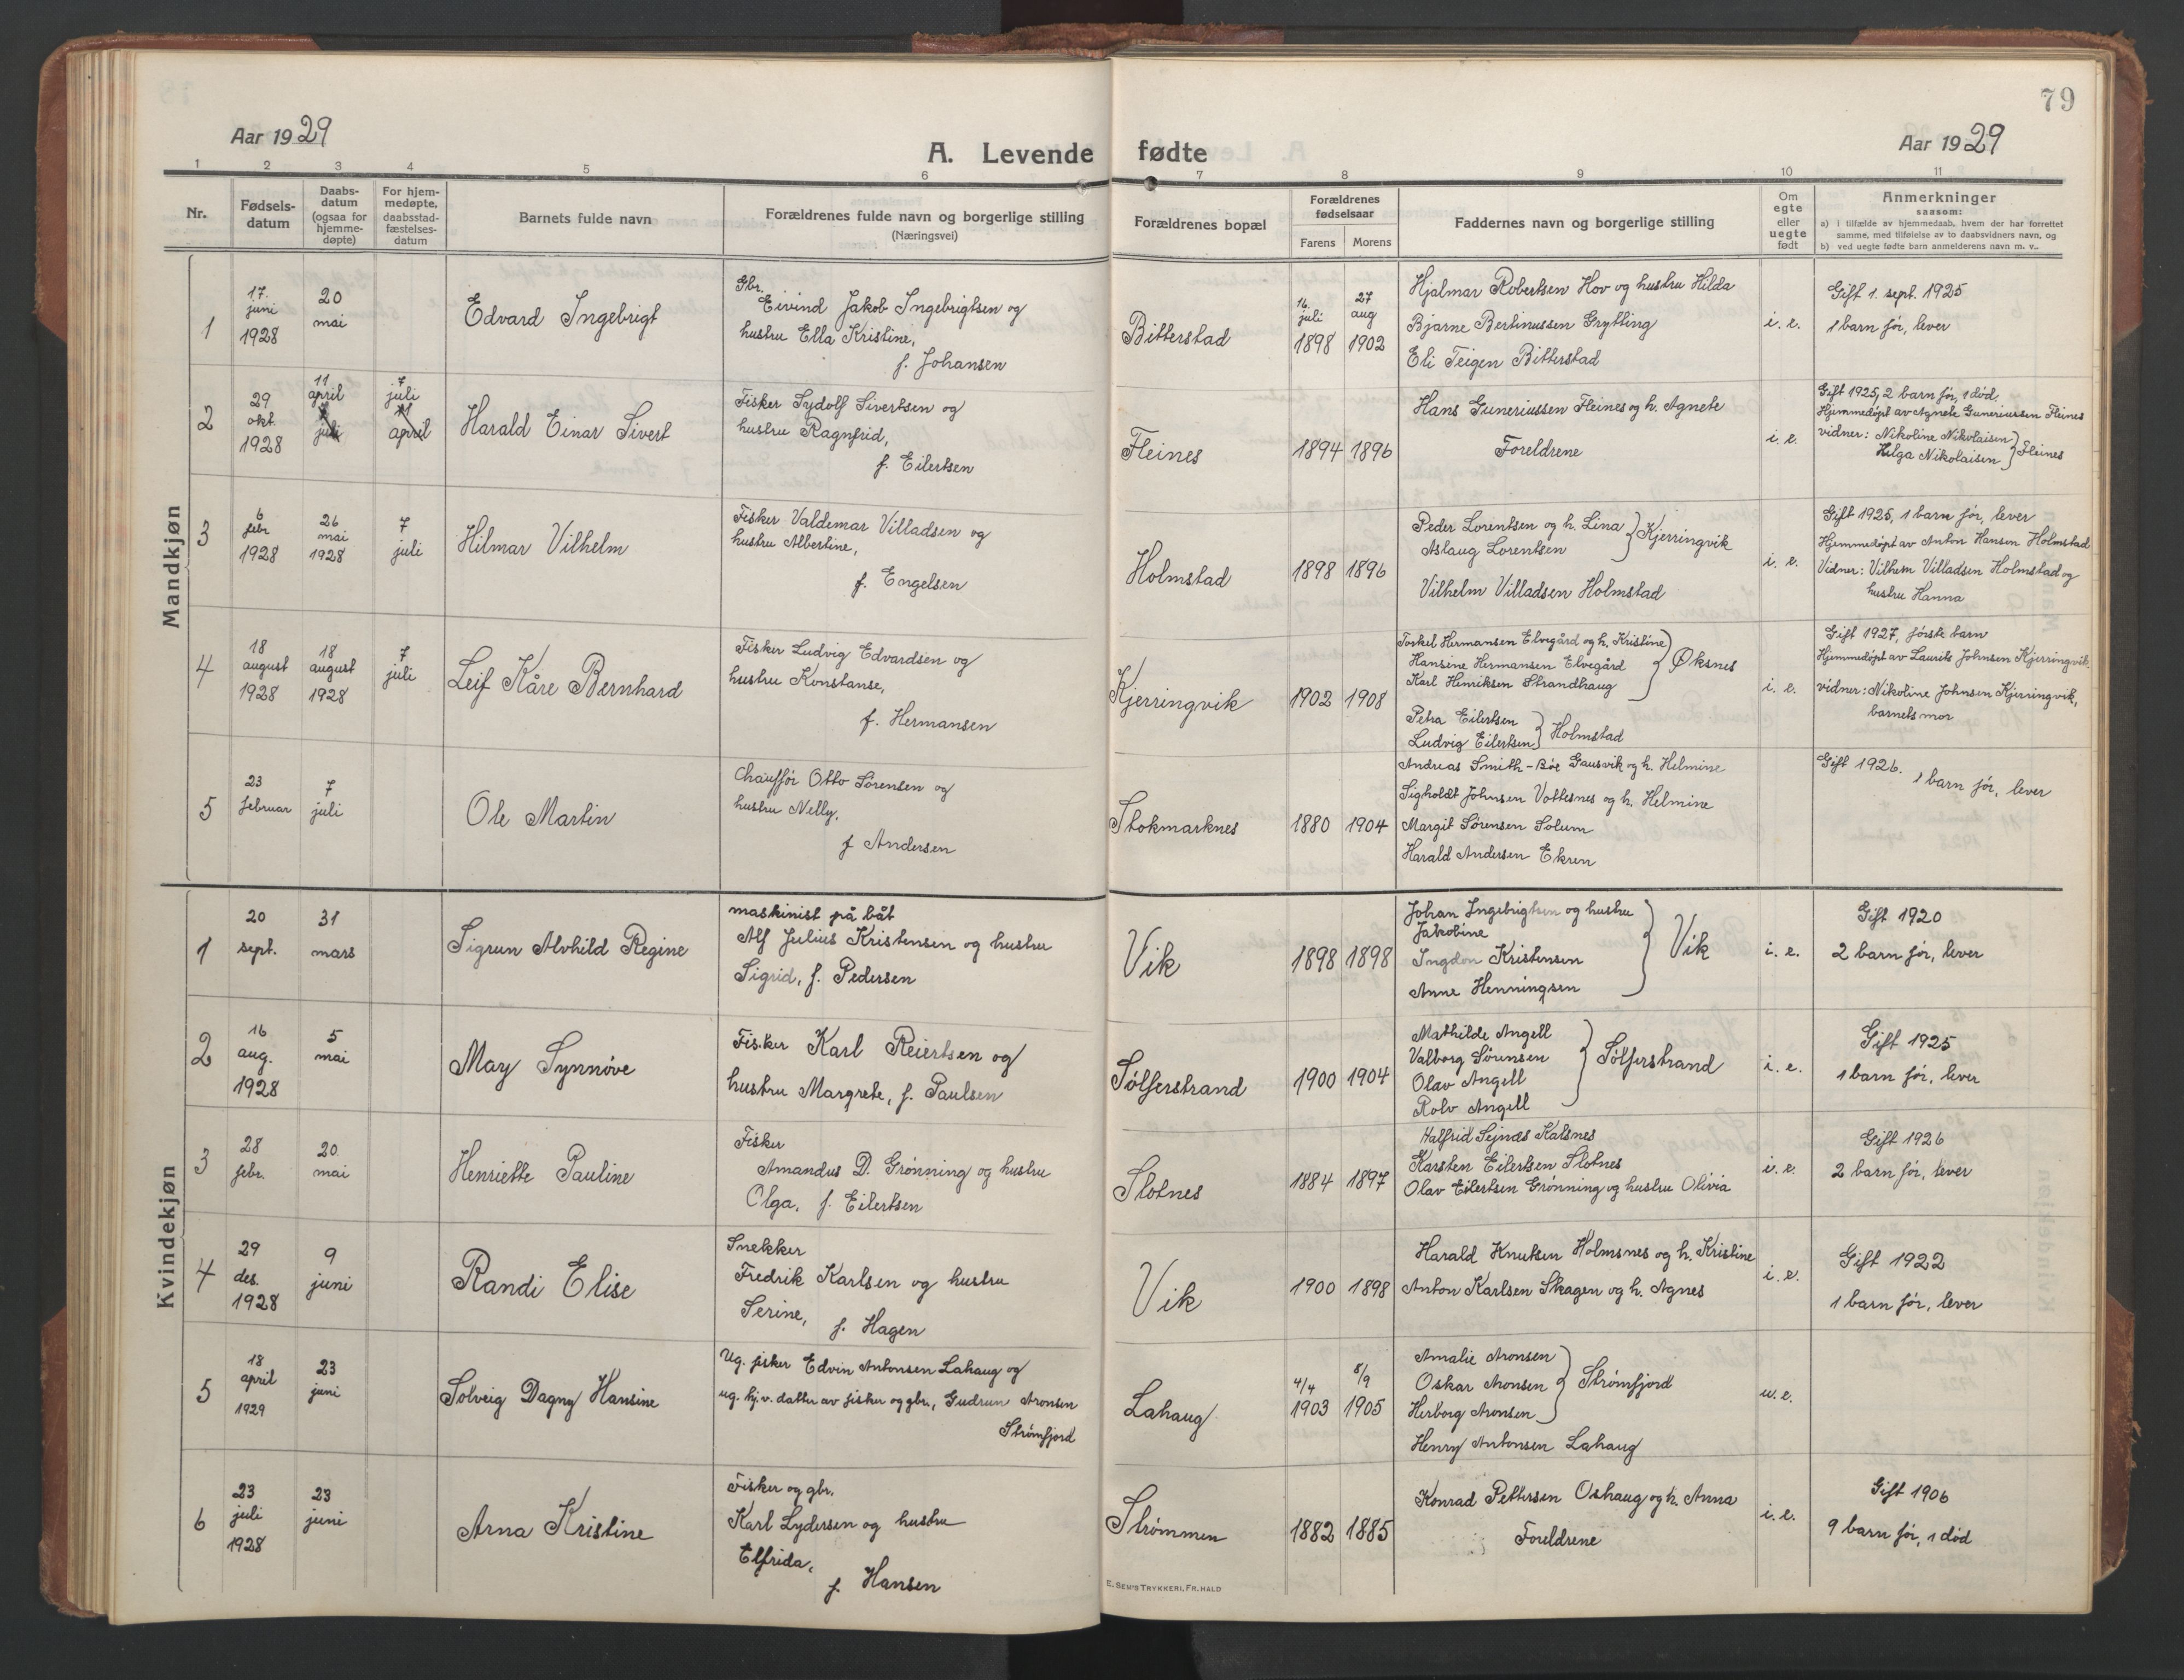 79
Aar 1929
A. Levende fødte
Aar 1929
1 2 3 4 5 6 7 8 9 10 11
Nr.
Fødsels-
datum
Daabs-
datum
(ogsaa for
hjemme-
døpte)
For hjem-
medøpte,
daabsstad-
fæstelses-
datum
Barnets fulde navn
Forældrenes fulde navn og borgerlige stilling
(Næringsvei)
Forældrenes bopæl
Forældrenes
fødselsaar
Farens Morens
Faddernes navn og borgerlige stilling
Om
egte
eller
uegte
født
Anmerkninger
saasom:
a) i tilfælde av hjemmedaab, hvem der har forrettet
samme, med tilføielse av to daabsvidners navn, og
b) ved uegte fødte barn anmelderens navn m. v..
Mandkjøn
1
17.
juni
1928
20
mai
Edvard Ingebrigt
Gbr.
Eivind Jakob Ingebrigtsen og
hustru Ella Kristine,
f. Johansen
Bitterstad
16.
juli
1898
27
aug
1902
Hjalmar Robertsen Hov og hustru Hilda
Bjarne Bertinussen Grytting
Eli Teigen Bitterstad
i. e.
Gift 1. sept. 1925
1 barn før, lever
2
29
okt.
1928
11
april
7
juli
7
juli
11
april
Harald Einar Sivert
Fisker Sydolf Sivertsen og
hustru Ragnfrid,
f. Eilertsen
Fleines
1894 1896
Hans Guneriussen Fleines og h. Agnete
Foreldrene
i. e.
Gift 1925, 2 barn før, 1 død.
Hjemmedøpt av Agnete Guneriussen Fleines
vidner: Nikoline Nikolaisen
Helga Nikolaisen } Fleines
3
6
febr
1928
26
mai
1928
7
juli
Hilmar Vilhelm
Fisker Valdemar Villadsen og
hustru Albertine,
f. Engelsen
Holmstad
1898 1896
Peder Lorentsen og h. Lina
Aslaug Lorentsen } Kjerringvik
Vilhelm Villadsen Holmstad
i. e.
Gift 1925, 1 barn før, lever
Hjemmedøpt av Anton Hansen Holmstad
Vidner: Vilhem Villadsen Holmstad og
hustru Hanna
4
18
august
1928
18
august
1928
7
juli
Leif Kåre Bernhard
Fisker Ludvig Edvardsen og
hustru Konstanse,
f. Hermansen
Kjerringvik
1902 1908
Torkel Hermansen Elvegård og h. Kristine
Hansine Hermansen Elvegård
Karl Henriksen Strandhaug } Øksnes
Petra Eilertsen
Ludvig Eilertsen } Holmstad
i. e.
Gift 1927, første barn
Hjemmedøpt av Laurits Johnsen Kjerringvik.
vidner: Nikoline Johnsen Kjerringvik,
barnets mor
5
23
februar
7
juli
Ole Martin
Chauffør Otto Sørensen og
hustru Nelly,
f Andersen
Stokmarknes
1880 1904
Andreas Smith-Bøe Gausvik og h. Helmine
Sigholdt Johnsen Vottesnes og h. Helmine
Margit Sørensen Solum
Harald Andersen Ekren
Gift 1926. 1 barn før, lever
Kvindekjøn
1
20
sept.
31
mars
Sigrun Alvhild Regine
maskinist på båt
Alf Julius Kristensen og hustru
Sigrid, f. Pedersen
Vik
1898 1898
Johan Ingebrigtsen og hustru
Jakobine
Kristensen
Anne Henningsen } Vik
i. e.
Gift 1920
2 barn før, lever
2
16
aug.
1928
5
mai
May Synnøve
Fisker Karl Reiertsen og
hustru Margrete, f. Paulsen
Sølferstrand
1900 1904
Mathilde Angell
Valborg Sørensen
Olav Angell
Rolv Angell } Sølferstrand
i. e.
Gift 1925
1 barn før, lever
3
28
febr.
20.
mai
Henriette Pauline
Fisker
Amandus D. Grønning og hustru
Olga, f. Eilertsen
Slotnes
1884 1897
Halfrid Sejnæs Kalsnes
Karsten Eilertsen Slotnes
Olav Eilertsen Grønning og hustru Olivia
i. e.
Gift 1926
2 barn før, lever
4
29
des.
1928
9
juni
Randi Elise
Snekker
Fredrik Karlsen og hustru
Serine,
f. Hagen
Vik
1900 1898
Harald Knutsen Holmsnes og h. Kristine
Anton Karlsen Skagen og h. Agnes
i. e.
Gift 1922
1 barn før, lever
5
18
april
1929
23
juni
Solveig Dagny Hansine
Ug. fisker Edvin Antonsen Lahaug og
ug. hj.v. datter av fisker og gbr., Gudrun Aronsen
Strømfjord
Lahaug
4/4
1903
8/9
1905
Amalie Aronsen
Oskar Aronsen
Herborg Aronsen } Strømfjord
Henry Antonsen Lahaug
u. e.
6
23
juli
1928
23
juni
Arna Kristine
Fisker og gbr.
Karl Lydersen og hustru
Elfrida,
f. Hansen
Strømmen
1882 1885
Konrad Pettersen Oshaug og h. Anna
Foreldrene
i. e.
Gift 1906
9 barn før, 1 død
E. SEM'S TRYKKERI, FR.HALD